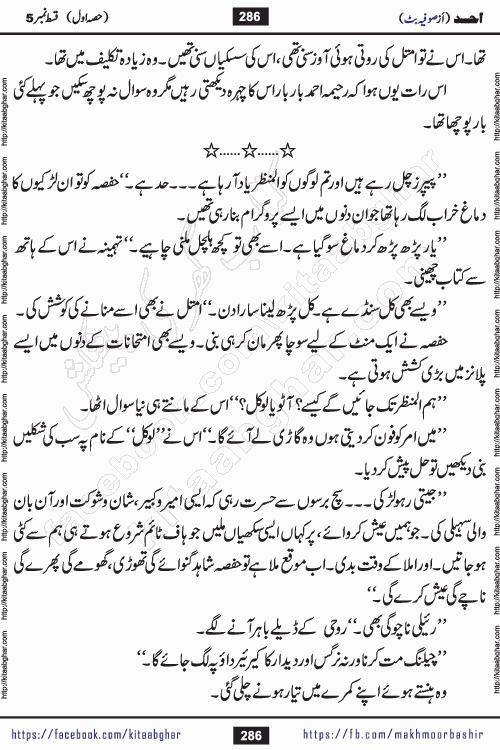 احمد (از صوفیہ بٹ) 286 (حصہ اول) قسط نمبر 5
تھا۔ اس نے تو امتل کی روتی ہوئی آوز سنی تھی، اس کی سسکیاں سنی تھیں۔ وہ زیادہ تکلیف میں تھا۔
اس رات یوں ہوا کہ رحیمہ احمد بار بار اس کا چہرہ دیکھتی رہیں مگر وہ سوال نہ پوچھ سکیں جو پہلے کئی
بار پوچھا تھا۔
☆......☆......☆
’’پیپرز چل رہے ہیں اور تم لوگوں کو المنظر یاد آ رہا ہے۔۔۔۔حد ہے۔‘‘ حفصہ کو تو ان لڑکیوں کا
دماغ خراب لگ رہا تھا جو ان دنوں میں ایسے پروگرام بنا رہی تھیں۔
’’یار پڑھ پڑھ کر دماغ سو گیا ہے۔ اسے بھی تو کچھ ہلچل ملنی چاہیے۔‘‘ تہمینہ نے اس کے ہاتھ
سے کتاب چھینی۔
’’ویسے بھی کل سنڈے ہے۔ کل پڑھ لینا سارا دن۔‘‘ امتل نے بھی اسے منانے کی کوشش کی۔
حفصہ نے ایک منٹ کے لیے سوچا پھر مان کر ہی بنی۔ ویسے بھی امتحانات کے دنوں میں ایسے
پلانز میں بڑی کشش ہوتی ہے۔
’’ہم المنظر تک جائیں گے کیسے؟ آٹو یا لوکل؟‘‘ اس کے مانتے ہی نیا سوال اٹھا۔
’’میں امر کو فون کر دیتی ہوں وہ گاڑی لے آئے گا۔‘‘ اس نے ’’لوکل‘‘ کے نام پہ سب کی شکلیں
بنی دیکھیں تو حل پیش کر دیا۔
’’جیتی رہو لڑکی۔۔۔۔سچ برسوں سے حسرت رہی کہ ایسی امیر و کبیر، شان و شوکت اور آن بان
والی سہیلی کی۔ جو ہمیں عیش کروائے، پر کہاں ایسی سکھیاں ملیں جو ہاف ٹائم شروع ہوتے ہی ہم سے کٹی
ہو جاتیں۔ اور املا کے وقت بدی۔ اب موقع ملا ہے تو حفصہ شاہد گنوائے گی تھوڑی، گھومے گی پھرے گی
ناچے گی عیش کرے گی۔‘‘
’’رئیلی ناچو گی بھی۔‘‘ روحی کے ڈیلے باہر آنے لگے۔
’’چیلنج مت کرنا ورنہ نرگس اور دیدار کا کیرئیر داؤ پہ لگ جائے گا۔‘‘
وہ ہنستے ہوئے اپنے کمرے میں تیار ہونے چلی گئی۔
https://facebook.com/kitaabghar 286 https://fb.com/makhmoorbashir
http://kitaabghar.com http://kitaabghar.com http://kitaabghar.com http://kitaabghar.com
http://kitaabghar.com http://kitaabghar.com http://kitaabghar.com http://kitaabghar.com
کتاب گھر کی پیشکش
kitaabghar.com
facebook.com/kitaabghar